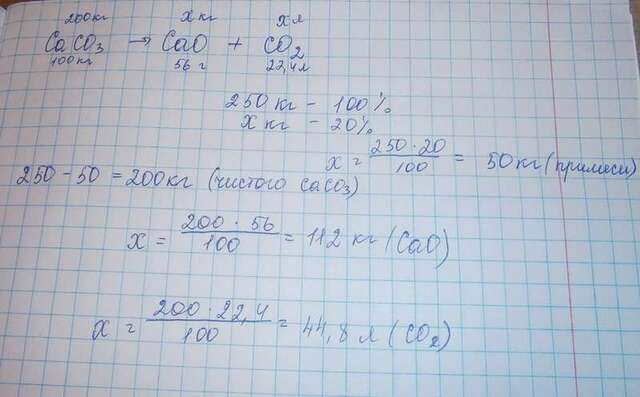 200кг xкг xл
CaCO₃ → CaO + CO₂
100кг 56 г 22,4л
250 кг - 100%
x кг - 20%
x = 250 · 20 / 100 = 50 кг (примеси)
250 - 50 = 200кг (чистого CaCO₃)
x = 200 · 56 / 100 = 112 кг (CaO)
x = 200 · 22,4 / 100 = 44,8 л (CO₂)